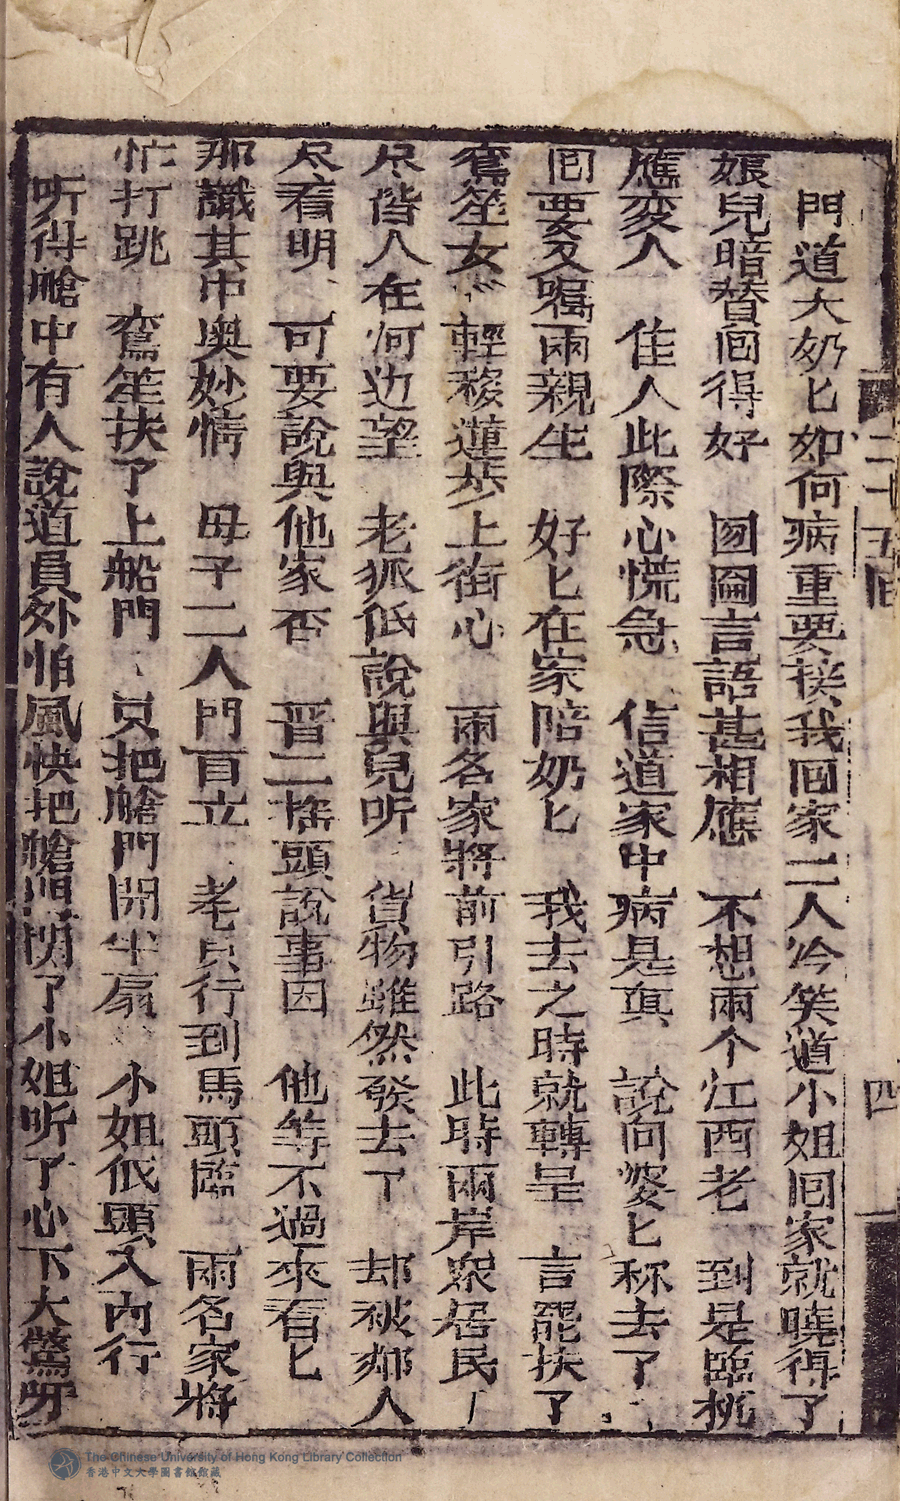 門道大奶匕如何病重要接我囘家二人冷笑道小姐囘家就曉得了
娘兒暗贊囘得好 囫圇言語甚相應 不想兩个江西老 到是臨挑
應变人 佳人此際心慌急 信道家中病是真 說向婆匕称去了
囘要又嘱兩親生 好匕在家陪奶匕 我去之時就轉呈 言罷扶了
鸞笙女 輕移蓮步上街心 兩名家將前引路 此時兩岸衆居民
尽皆人在河边望 老狐低說與兒听 貨物雖然發去了 却被鄰人
尽看明 可要說與他家否 晋二搖頭說事因 他等不過來看匕
那識其中奥妙情 母子二人門首立 老吳行到馬頭臨 兩名家將
忙打跳 鸞笙扶了上船門 只把艙門開半扇 小姐低頭入內行
听得艙中有人說道員外怕風快把艙門関了小姐听了心下大驚呀
二十五囘
四
The Chinese University of Hong Kong Library Collection
香港中文大學圖書館館藏